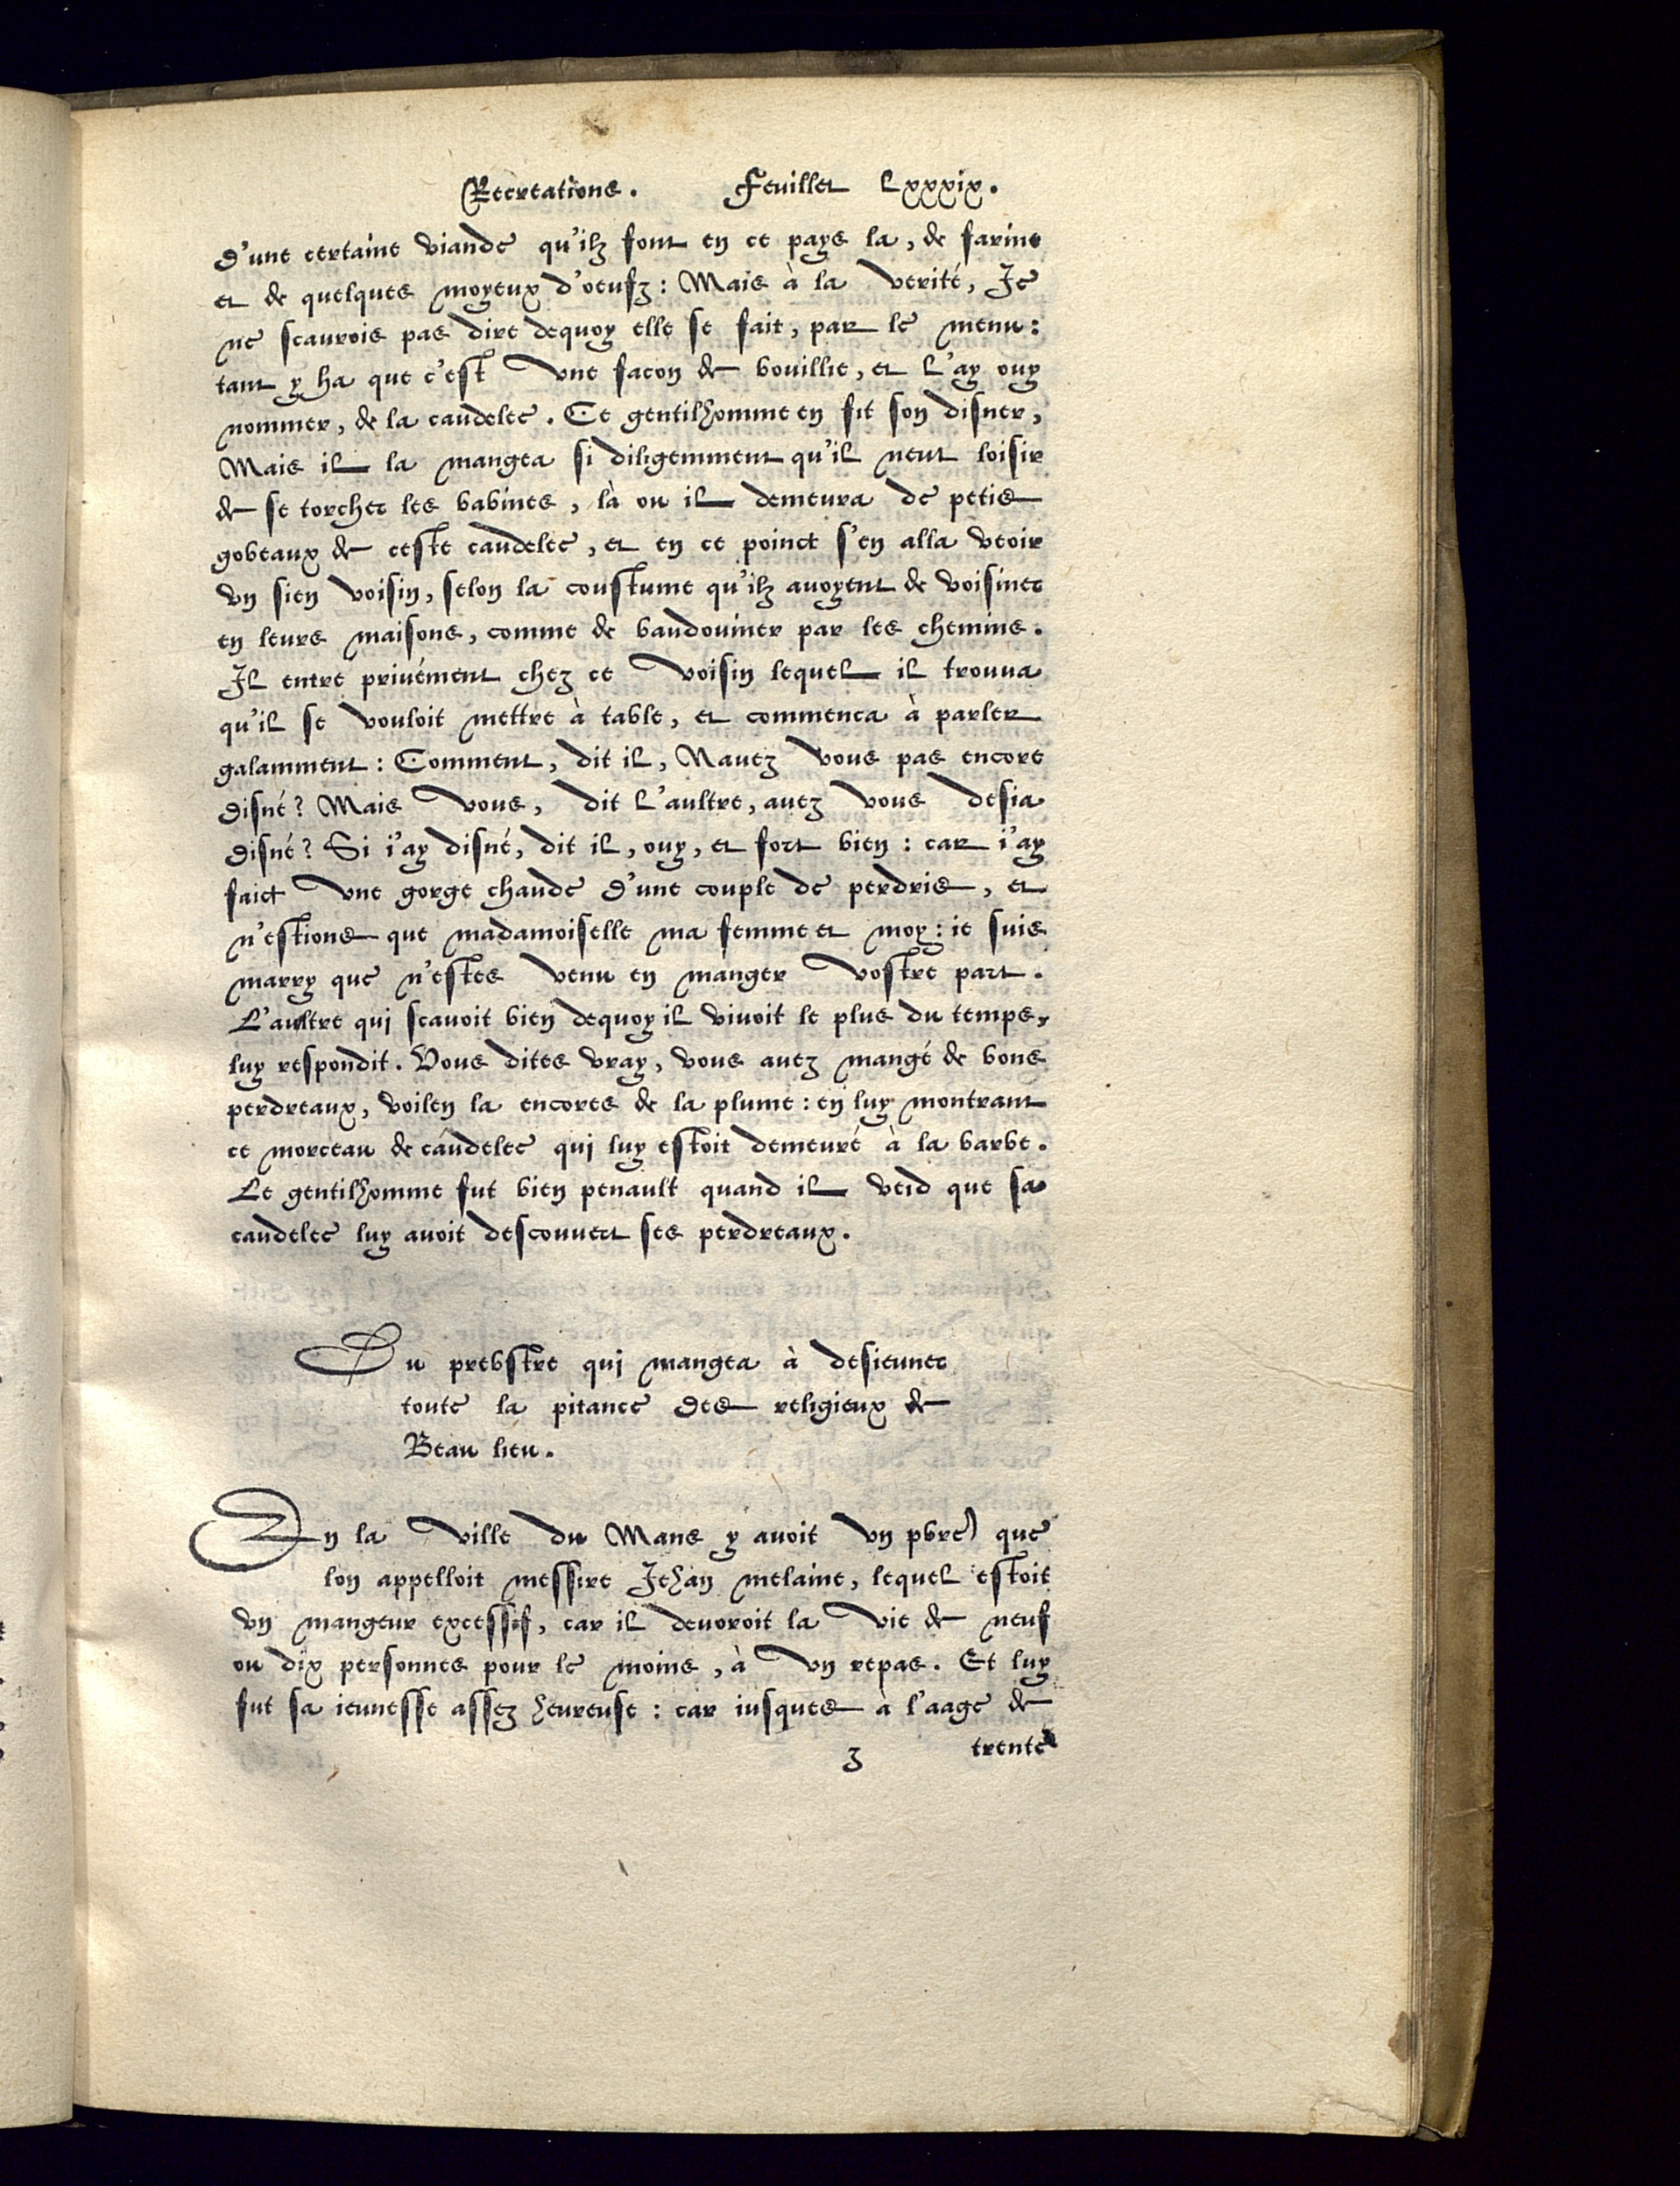 Recreations. Feuillet Lxxxix.
d'une certaine viande qu'ilz font en ce pays la, de farine
et de quelques moyeux d'oeufz: Mais à la verité, Je
ne scaurois pas dire dequoy elle se fait, par le menu:
tant y ha que c'est vne facon de bouillie, et l'ay ouy
nommer, de la caudelee. Ce gentilhomme en fit son disner,
Mais il la mangea si diligemment qu'il neut loisir
de se torcher les babines, là ou il demeura de petis
gobeaux de ceste caudelee, et en ce poinct s'en alla veoir
vn sien voisin, selon la coustume qu'ilz auoyent de voisiner
en leurs maisons, comme de baudouiner par les chemins.
Il entre priuément chez ce voisin lequel il trouua
qu'il se vouloit mettre à table, et commenca à parler
galamment: Comment, dit il, Nauez vous pas encore
disné? Mais vous, dit l'aultre, auez vous desia
disné? Si i'ay disné, dit il, ouy, et fort bien: car i'ay
faict vne gorge chaude d'une couple de perdris, et
n'estions que madamoiselle ma femme et moy: ie suis
marry que n'estes venu en manger vostre part.
L'aultre qui scauoit bien dequoy il viuoit le plus du temps,
luy respondit. Vous dites vray, vous auez mangé de bons
perdreaux, voilen la encores de la plume: en luy montrant
ce morceau de caudelee qui luy estoit demeuré à la barbe.
Le gentilhomme fut bien penault quand il veid que sa
caudelee luy auoit descouuert ses perdreaux.
Du prebstre qui mangea à desieuner
toute la pitance des religieux de
Beau lieu.
En la ville du Mans y auoit vn pbre que
lon appelloit messire Jehan melaine, lequel estoit
vn mangeur excessif, car il deuoroit la vie de neuf
ou dix personnes pour le moins, à vn repas. Et luy
fut sa ieunesse assez heureuse: car iusques à l'aage de
z trente